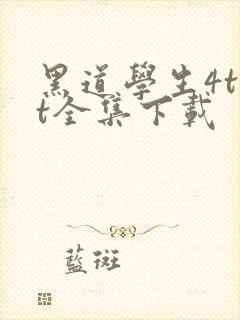 黑道學生4t
t全集下載
藍斑